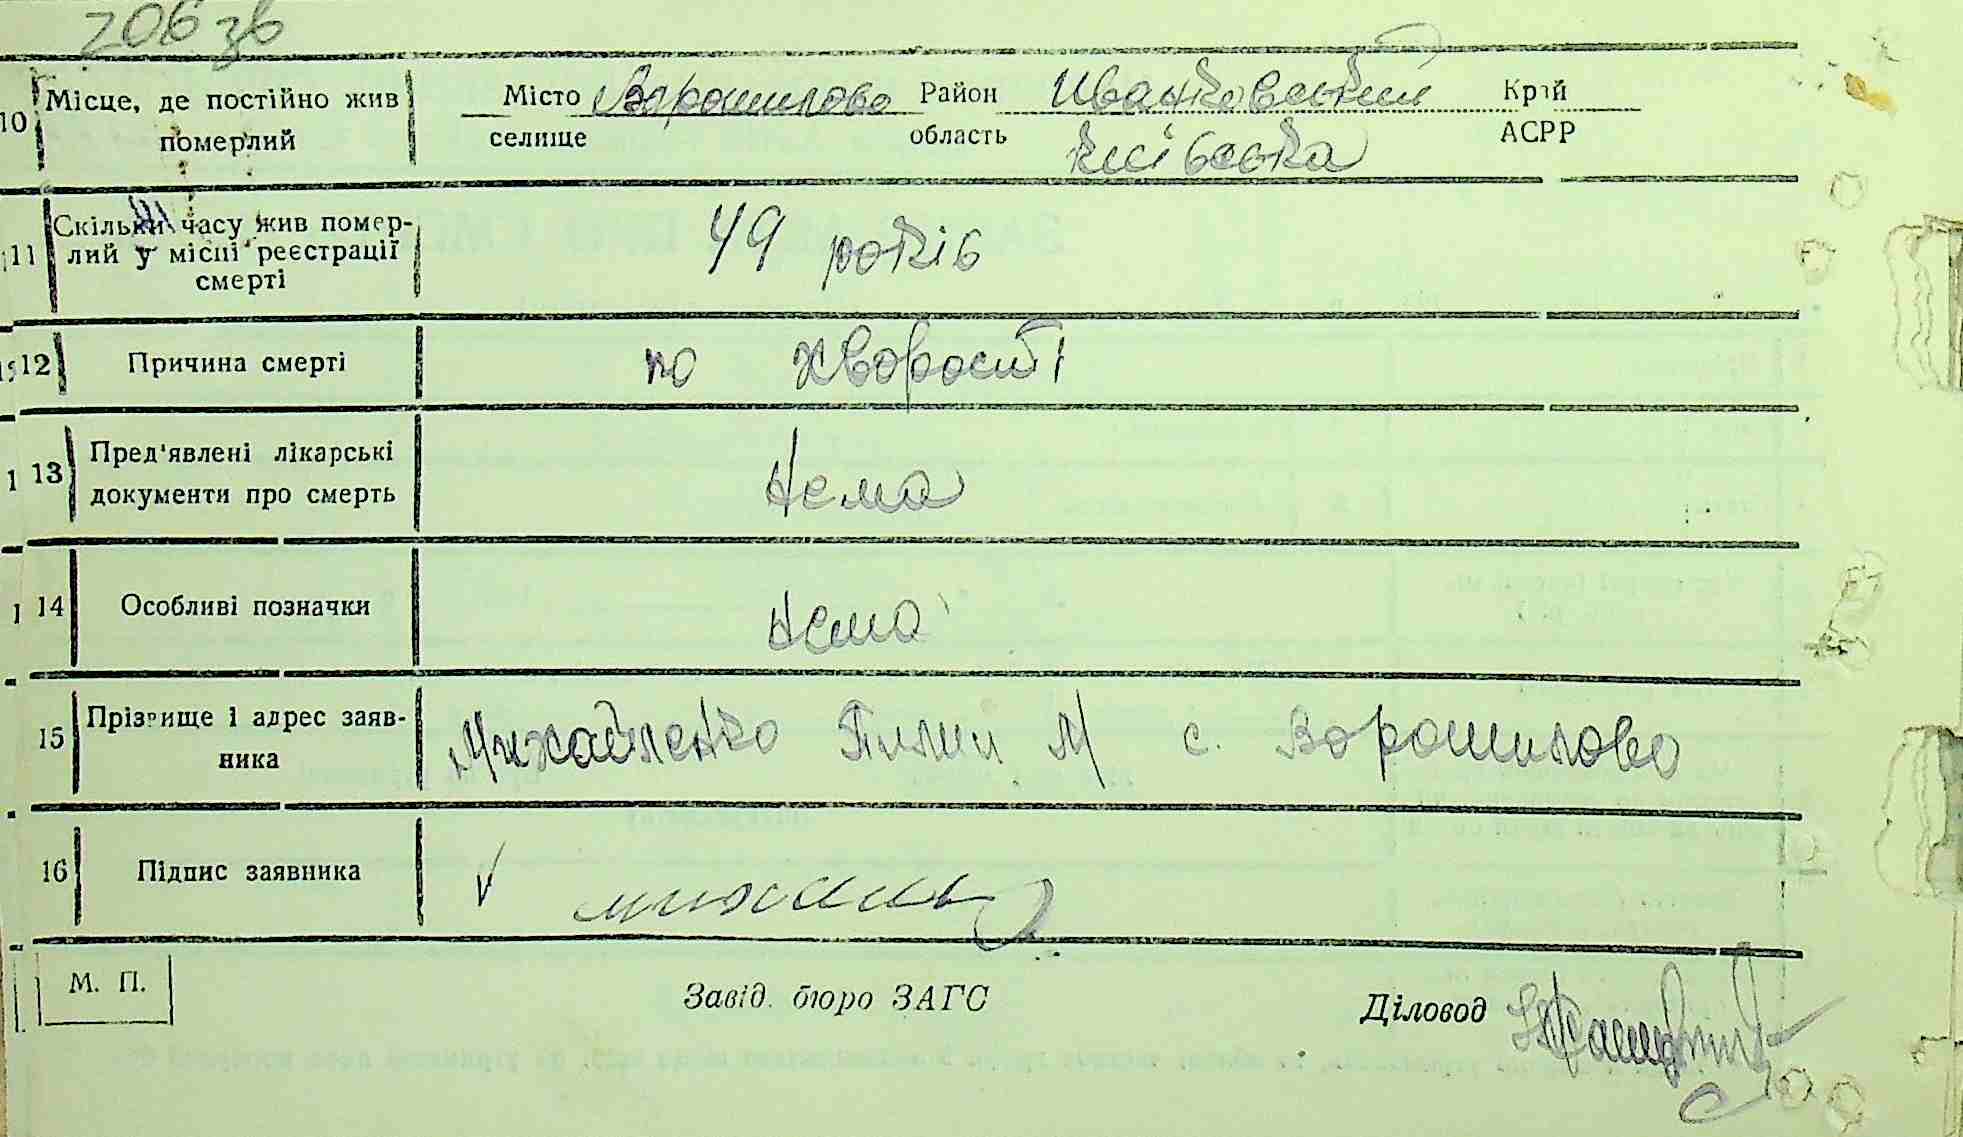 206 зв
10 Місце, де постійно жив померлий
Місто Ворошилово Район Иванковский Край
селище область Київська АСРР
11 Скільки часу жив померлий у місці реєстрації смерті
49 років
12 Причина смерті по хворості
13 Пред'явлені лікарські документи про смерть
Нема
14 Особливі позначки Нема
15 Прізвище і адрес заявника
Михайленко Пилип М с. Ворошилово
16 Підпис заявника V
М. П. Завід. бюро ЗАГС Діловод